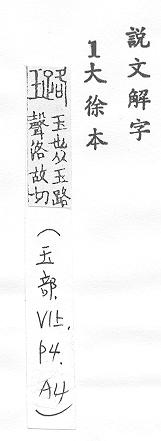 說文解字
1大徐本
璐
玉也从玉路
聲洛故切
（玉部, V1上, P4. A4）